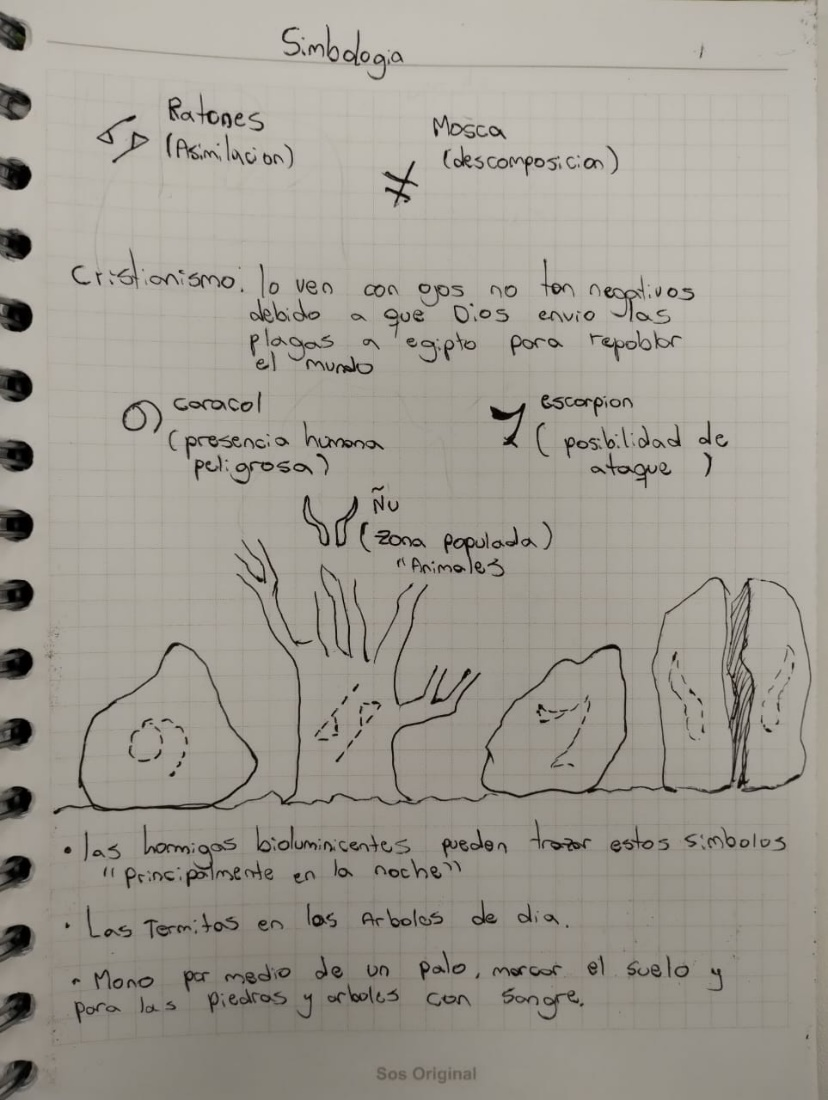 Simbologia
Ratones
(Asimilacion)
Mosca
(descomposicion)
Cristianismo: lo ven con ojos no tan negativos
debido a que Dios envio las
plagas a egipto para repoblar
el mundo
caracol
(presencia humana
peligrosa)
escorpion
( posibilidad de
ataque )
Ñu
(zona populada)
"Animales
• las hormigas bioluminicentes pueden trazar estos simbolos
"principalmente en la noche"
• Las Termitas en las Arboles de dia.
• Mono por medio de un palo, marcar el suelo y
para las piedras y arboles con sangre.
Sos Original